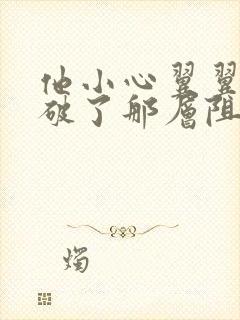 他小心翼翼
破了那层阻
烛